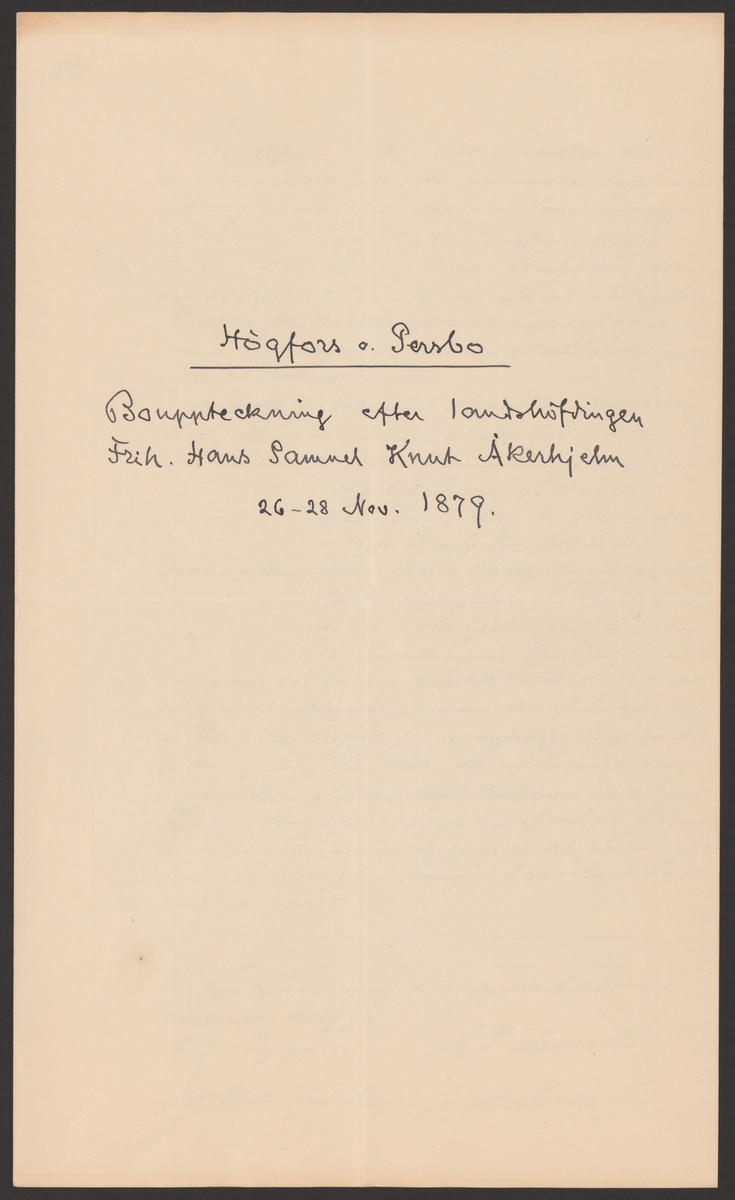 Högfors o. Persbo
Bouppteckning efter landshöfdingen
Frih. Hans Samuel Knut Åkerhjelm
26-28 Nov. 1879.